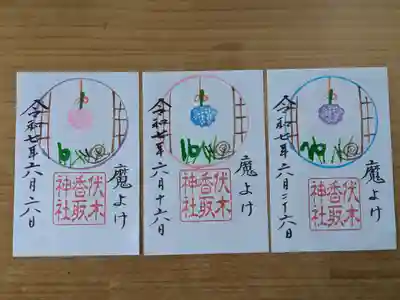 魔よけ
6
伏木
香取
神社
令和七年六月六日
魔よけ
16
伏木
香取
神社
令和七年六月十六日
魔よけ
26
伏木
香取
神社
令和七年六月二十六日